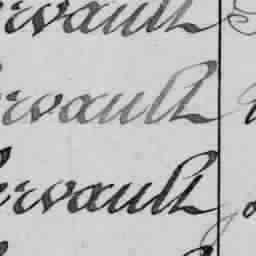 ervault
ervault
ervault